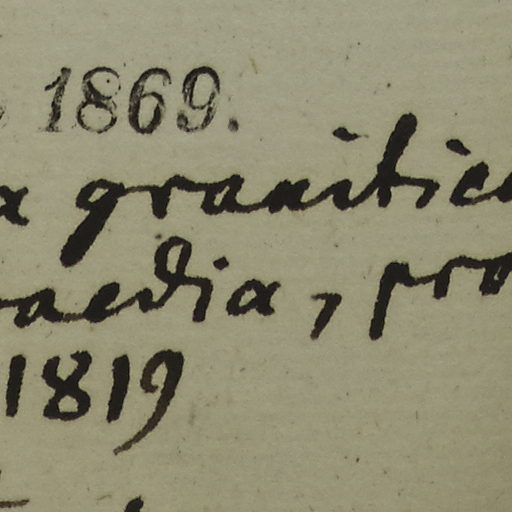 1869.
granitic
aedia, pro
1819